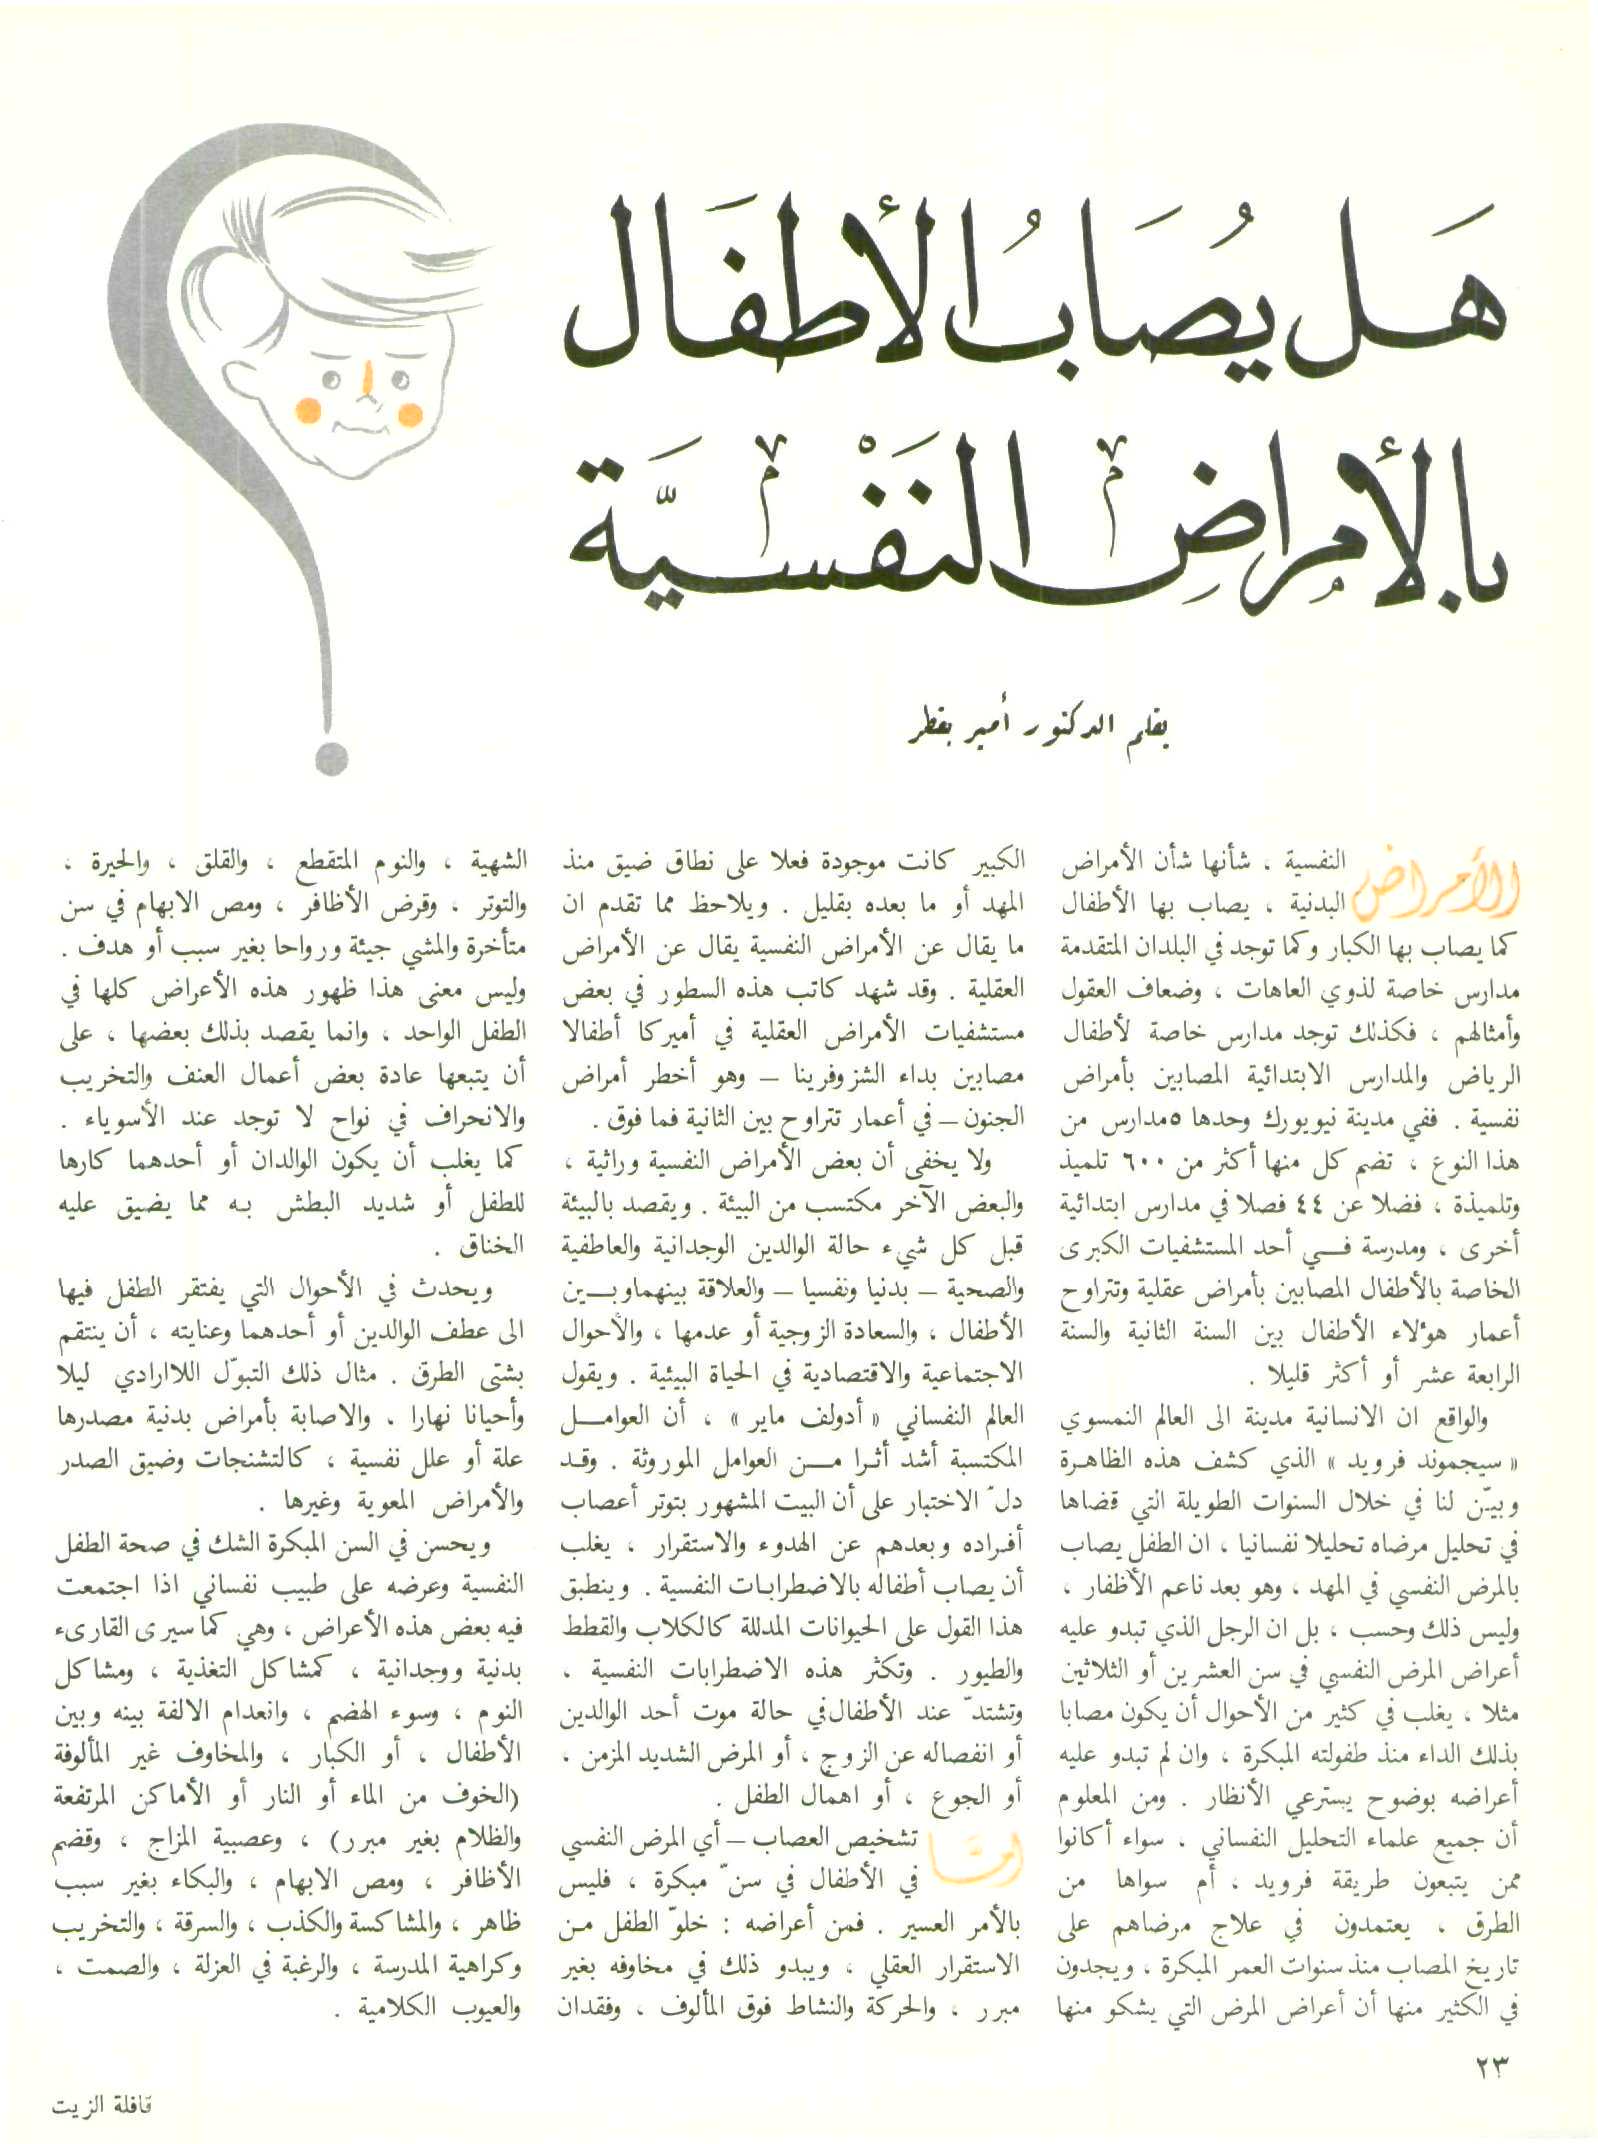 هَل يُصَابُ الأطفَال
بالأمراض النَفْسيَّة
بقلم الدكتور أمير بقطر
الأمراض النفسية ، شأنها شأن الأمراض
البدنية ، يصاب بها الأطفال
كما يصاب بها الكبار وكما توجد في البلدان المتقدمة
مدارس خاصة لذوي العاهات ، وضعاف العقول
وأمثالهم ، فكذلك توجد مدارس خاصة لأطفال
الرياض والمدارس الابتدائية المصابين بأمراض
نفسية . ففي مدينة نيويورك وحدها ٥مدارس من
هذا النوع ، تضم كل منها أكثر من ٦٠٠ تلميذ
وتلميذة ، فضلا عن ٤٤ فصلا في مدارس ابتدائية
أخرى ، ومدرسة فــي أحد المستشفيات الكبرى
الخاصة بالأطفال المصابين بأمراض عقلية وتتراوح
أعمار هؤلاء الأطفال بين السنة الثانية والسنة
الرابعة عشر أو أكثر قليلا .
والواقع ان الانسانية مدينة الى العالم النمسوي
« سيجموند فرويد » الذي كشف هذه الظاهرة
وبيّن لنا في خلال السنوات الطويلة التي قضاها
في تحليل مرضاه تحليلا نفسانيا ، ان الطفل يصاب
بالمرض النفسي في المهد ، وهو بعد ناعم الأظفار ،
وليس ذلك وحسب ، بل ان الرجل الذي تبدو عليه
أعراض المرض النفسي في سن العشرين أو الثلاثين
مثلا ، يغلب في كثير من الأحوال أن يكون مصابا
بذلك الداء منذ طفولته المبكرة ، وان لم تبدو عليه
أعراضه بوضوح يسترعي الأنظار . ومن المعلوم
أن جميع علماء التحليل النفساني ، سواء أكانوا
ممن يتبعون طريقة فرويد ، أم سواها من
الطرق ، يعتمدون في علاج مرضاهم على
تاريخ المصاب منذ سنوات العمر المبكرة ، ويجدون
في الكثير منها أن أعراض المرض التي يشكو منها
الكبير كانت موجودة فعلا على نطاق ضيق منذ
المهد أو ما بعده بقليل . ويلاحظ مما تقدم ان
ما يقال عن الأمراض النفسية يقال عن الأمراض
العقلية . وقد شهد كاتب هذه السطور في بعض
مستشفيات الأمراض العقلية في أميركا أطفالا
مصابين بداء الشزوفرينا – وهو أخطر أمراض
الجنون – في أعمار تتراوح بين الثانية فما فوق .
ولا يخفى أن بعض الأمراض النفسية وراثية ،
والبعض الآخر مكتسب من البيئة . ويقصد بالبيئة
قبل كل شيء حالة الوالدين الوجدانية والعاطفية
والصحية – بدنيا ونفسيا – والعلاقة بينهماوبــين
الأطفال ، والسعادة الزوجية أو عدمها ، والأحوال
الاجتماعية والاقتصادية في الحياة البيئية . ويقول
العالم النفساني « أدولف ماير » ، أن العوامــل
المكتسبة أشد أثـرا مــن العوامل الموروثة . وقـد
دلّ الاختبار على أن البيت المشهور بتوتر أعصاب
أفـراده وبعدهم عن الهدوء والاستقرار ، يغلب
أن يصاب أطفاله بالاضطرابات النفسية . وينطبق
هذا القول على الحيوانات المدللة كالكلاب والقطط
والطيور . وتكثر هذه الاضطرابات النفسية ،
وتشتدّ عند الأطفال في حالة موت أحد الوالدين
أو انفصاله عن الزوج ، أو المرض الشديد المزمن ،
أو الجوع ، أو اهمال الطفل .
امّا تشخيص العصاب – أي المرض النفسي
في الأطفال في سنّ مبكرة ، فليس
بالأمر العسير . فمن أعراضه : خلوّ الطفل مـن
الاستقرار العقلي ، ويبدو ذلك في مخاوفه بغير
مبرر ، والحركة والنشاط فوق المألوف ، وفقدان
الشهية ، والنوم المتقطع ، والقلق ، والحيرة ،
والتوتر ، وقرض الأظافر ، ومص الابهام في سن
متأخرة والمشي جيئة ورواحا بغير سبب أو هدف .
وليس معنى هذا ظهور هذه الأعراض كلها في
الطفل الواحد ، وانما يقصد بذلك بعضها ، على
أن يتبعها عادة بعض أعمال العنف والتخريب
والانحراف في نواح لا توجد عند الأسوياء .
كما يغلب أن يكون الوالدان أو أحدهما كارها
للطفل أو شديد البطش بـه مما يضيق عليه
الخناق .
ويحدث في الأحوال التي يفتقر الطفل فيها
الى عطف الوالدين أو أحدهما وعنايته ، أن ينتقم
بشتى الطرق . مثال ذلك التبوّل اللاارادي ليلا
وأحيانا نهارا ، والاصابة بأمراض بدنية مصدرها
علة أو علل نفسية ، كالتشنجات وضيق الصدر
والأمراض المعوية وغيرها .
ويحسن في السن المبكرة الشك في صحة الطفل
النفسية وعرضه على طبيب نفساني اذا اجتمعت
فيه بعض هذه الأعراض ، وهي كما سيرى القارىء
بدنية ووجدانية ، كمشاكل التغذية ، ومشاكل
النوم ، وسوء الهضم ، وانعدام الالفة بينه وبين
الأطفال ، أو الكبار ، والمخاوف غير المألوفة
(الخوف من الماء أو النار أو الأماكن المرتفعة
والظلام بغير مبرر) ، وعصبية المزاج ، وقضم
الأظافر ، ومص الابهام ، والبكاء بغير سبب
ظاهر ، والمشاكسة والكذب ، والسرقة ، والتخريب
وكراهية المدرسة ، والرغبة في العزلة ، والصمت ،
والعيوب الكلامية .
٢٣
قافلة الزيت